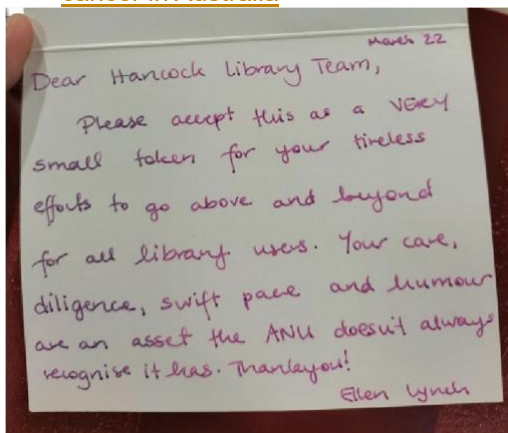 cancer in Australia
March 22
Dear Hancock Library Team,
Please accept this as a VERY
small token for your tireless
efforts to go above and beyond
for all library users. Your care,
diligence, swift pace and humour
are an asset the ANU doesn't always
recognise it has. Thankyou!
Ellen Lynch